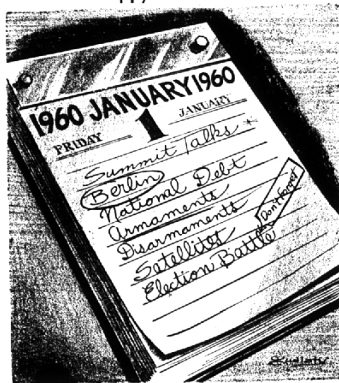 1960 JANUARY 1960
FRIDAY 1 JANUARY
Summit Talks
Berlin
National Debt
Armaments
Disarmaments
Satellites
Election Battle
Don't Forget